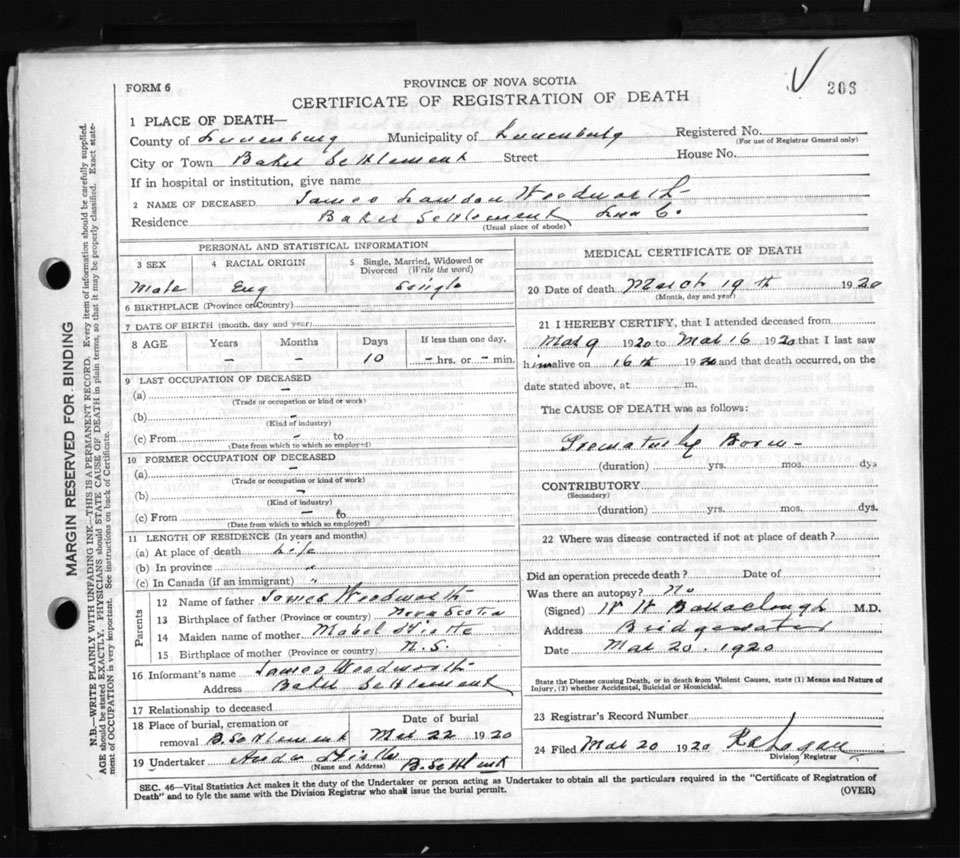 FORM 6
PROVINCE OF NOVA SCOTIA
CERTIFICATE OF REGISTRATION OF DEATH
203
1 PLACE OF DEATH—
County of Lunenburg Municipality of Lunenburg Registered No.
(For use of Registrar General only)
City or Town Baker Settlement Street House No.
If in hospital or institution, give name
2 NAME OF DECEASED James Woodworth
Residence Baker Settlement Lun Co.
(Usual place of abode)
PERSONAL AND STATISTICAL INFORMATION
3 SEX Male
4 RACIAL ORIGIN Eng
5 Single, Married, Widowed or Divorced (Write the word) Single
6 BIRTHPLACE (Province or County)
7 DATE OF BIRTH (month, day and year)
8 AGE Years – Months – Days 10 If less than one day, – hrs. or – min.
9 LAST OCCUPATION OF DECEASED
(a) –
(Trade or occupation or kind or work)
(b) –
(Kind of industry)
(c) From – to
(Date from which to which so employed)
10 FORMER OCCUPATION OF DECEASED
(a) –
(Trade or occupation or kind of work)
(b) –
(Kind of industry)
(c) From – to
(Date from which to which so employed)
11 LENGTH OF RESIDENCE (In years and months)
(a) At place of death Life
(b) In province "
(c) In Canada (if an immigrant) "
Parents
12 Name of father James Woodworth
13 Birthplace of father (Province or country) Nova Scotia
14 Maiden name of mother Mabel
15 Birthplace of mother (Province or country) N.S.
16 Informant's name James Woodworth
Address Baker Settlement
17 Relationship to deceased
18 Place of burial, cremation or removal B. Settlement Date of burial Mar 22 1920
19 Undertaker B. Settlement
(Name and Address)
MEDICAL CERTIFICATE OF DEATH
20 Date of death March 19th 1920
(Month, day and year)
21 I HEREBY CERTIFY, that I attended deceased from
Mar 9 1920 to Mar 16 1920 that I last saw
him alive on 16th 1920 and that death occurred, on the
date stated above, at m.
The CAUSE OF DEATH was as follows:
Prematurely Born
(duration) yrs. mos. dys
CONTRIBUTORY
(Secondary)
(duration) yrs. mos. dys.
22 Where was disease contracted if not at place of death?
Did an operation precede death? Date of
Was there an autopsy? No
(Signed) W W Barraclough M.D.
Address Bridgewater
Date Mar 20. 1920
State the Disease causing Death, or in death from Violent Causes, state (1) Means and Nature of
Injury, (2) whether Accidental, Suicidal or Homicidal.
23 Registrar's Record Number
24 Filed Mar 20 1920
Division Registrar
SEC. 46—Vital Statistics Act makes it the duty of the Undertaker or person acting as Undertaker to obtain all the particulars required in the "Certificate of Registration of
Death" and to fyle the same with the Division Registrar who shall issue the burial permit.
(OVER)
MARGIN RESERVED FOR BINDING
N.B.—WRITE PLAINLY WITH UNFADING INK—THIS IS A PERMANENT RECORD. Every item of information should be carefully supplied.
AGE should be stated EXACTLY. PHYSICIANS should STATE CAUSE OF DEATH in plain terms, so that it may be properly classified. Exact state-
ment of OCCUPATION is very important. See instructions on back of Certificate.